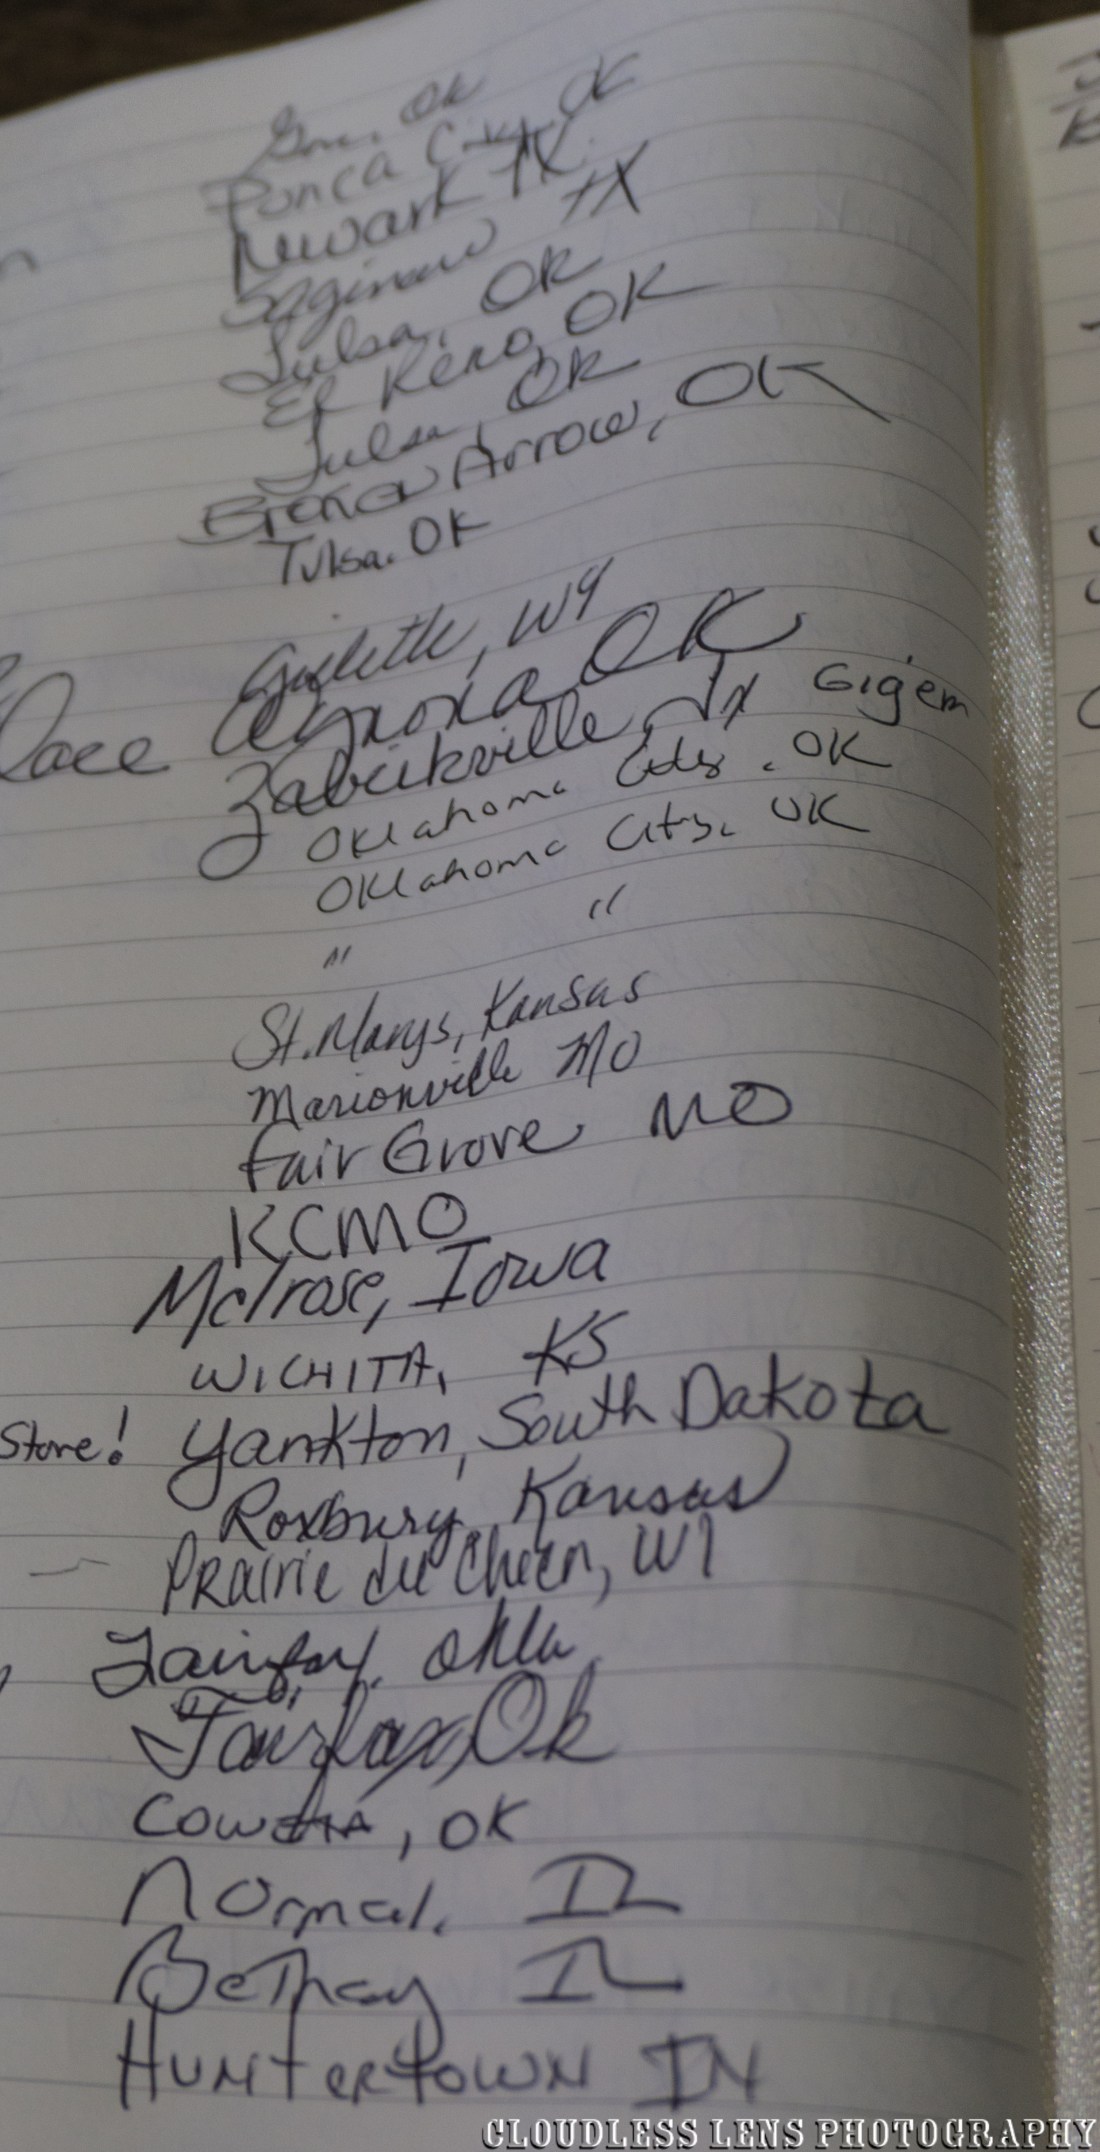 OK
Ponca City, OK
Newark TX
Saginaw TX
Tulsa, OK
El Reno, OK
Tulsa, OK
Broken Arrow, OK
Tulsa. OK
Gillette, WY
OK
Zabcikville, Tx Gig'em
Oklahoma City. OK
Oklahoma City. OK
" "
St. Marys, Kansas
Marionville MO
Fair Grove, MO
KCMO
Melrose, Iowa
WICHITA, KS
Store! Yankton, South Dakota
Roxbury, Kansas
Prairie du Chien, WI
Fairfax, Okla
Fairfax, Ok
Coweta, OK
Normal, IL
Bethany IL
Huntertown IN
CLOUDLESS LENS PHOTOGRAPHY